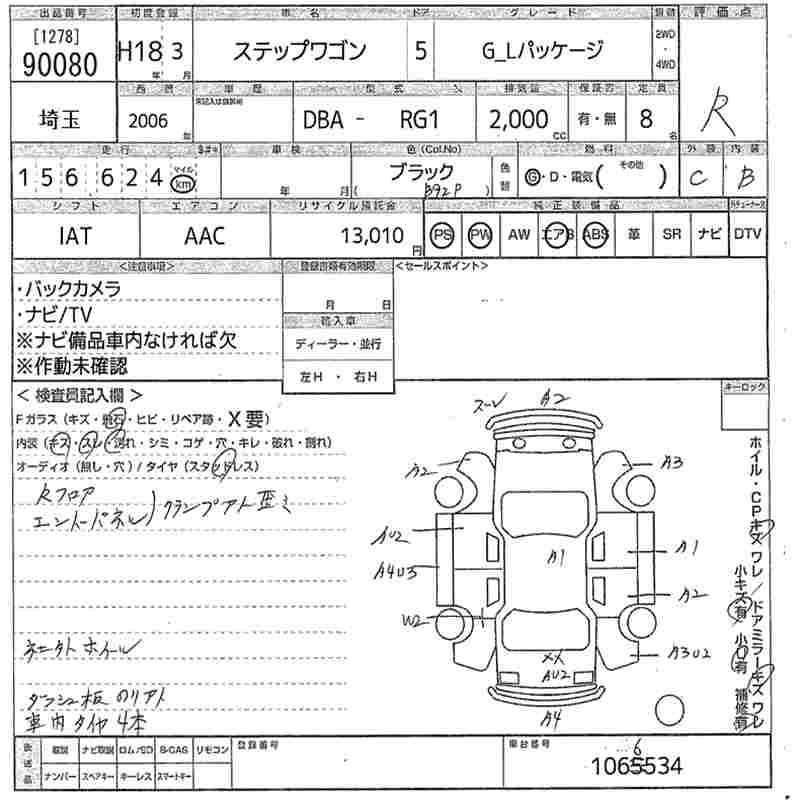 出品番号 初度登録 車名 ドア グレード 駆動 評価点
[1278] 90080 H18年 3月 ステップワゴン 5 G_Lパッケージ 2WD・4WD R
西暦 車歴 型式 排気量 保証書 定員
埼玉 2006年 未記入は自家用 DBA - RG1 2,000cc 有・無 8名
走行 車検 色(Col.No) 燃料 外装 内装
156,624 マイル km 年 月 ブラック (B92P) 色替 G・D・電気(その他) C B
シフト エアコン リサイクル預託金 純正装備品
IAT AAC 13,010円 PS PW AW エアB ABS 革 SR ナビ DTV
<注意事項> 登録書類有効期限 <セールスポイント>
・バックカメラ
・ナビ/TV
※ナビ備品車内なければ欠
※作動未確認
月 日
輸入車
ディーラー・並行
左H ・ 右H
キーロック
< 検査員記入欄 >
Fガラス(キズ・飛石・ヒビ・リペア跡・X要)
内装(キズ・スレ・汚れ・シミ・コゲ・穴・キレ・破れ・割れ)
オーディオ(無し・穴)/タイヤ(スタッドレス)
Rフロア
エンドパネル) クランプアト歪ミ
社外ホイール
ダッシュ板のリアト
車内タイヤ4本
スーレ A2
A2 A3
AU2 A1 A1
A4U3 A2
W2 A3U2
XX
AU2
A4
ホイル・CPキズワレ/ドアミラーキズワレ
小キズ有 小U有 補修有
後送品 取説 ナビ取説 ロム/SD B-CAS リモコン 登録番号 車台番号
ナンバー スペアキー キーレス スマートキー 1065534
6